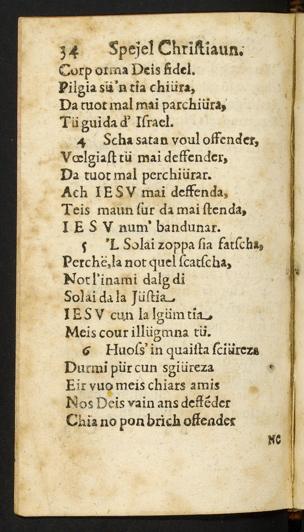 34 Spejel Chriſtiaun.
Corp orma Deis fidel.
Pilgia sü'n tia chiüra,
Da tuot mal mai parchiüra,
Tü guida d' Iſrael.
4 Scha satan voul offender,
Vœlgiaſt tü mai deffender,
Da tuot mal perchiürar.
Ach IESV mai deffenda,
Teis maun ſur da mai ſtenda,
IESV num' bandunar.
5 'L Solai zoppa ſia fatſcha,
Perchë, la not quel ſcatſcha,
Not l'inami dalg di
Solai da la Jüſtia
IESV cun la lgüm tia
Meis cour illügmna tü.
6 Huoſs' in quaiſta ſciüreza
Durmi pür cun sgiüreza
Eir vuo meis chiars amis
Nos Deis vain ans deffēder
Chia no pon brich offender
NC